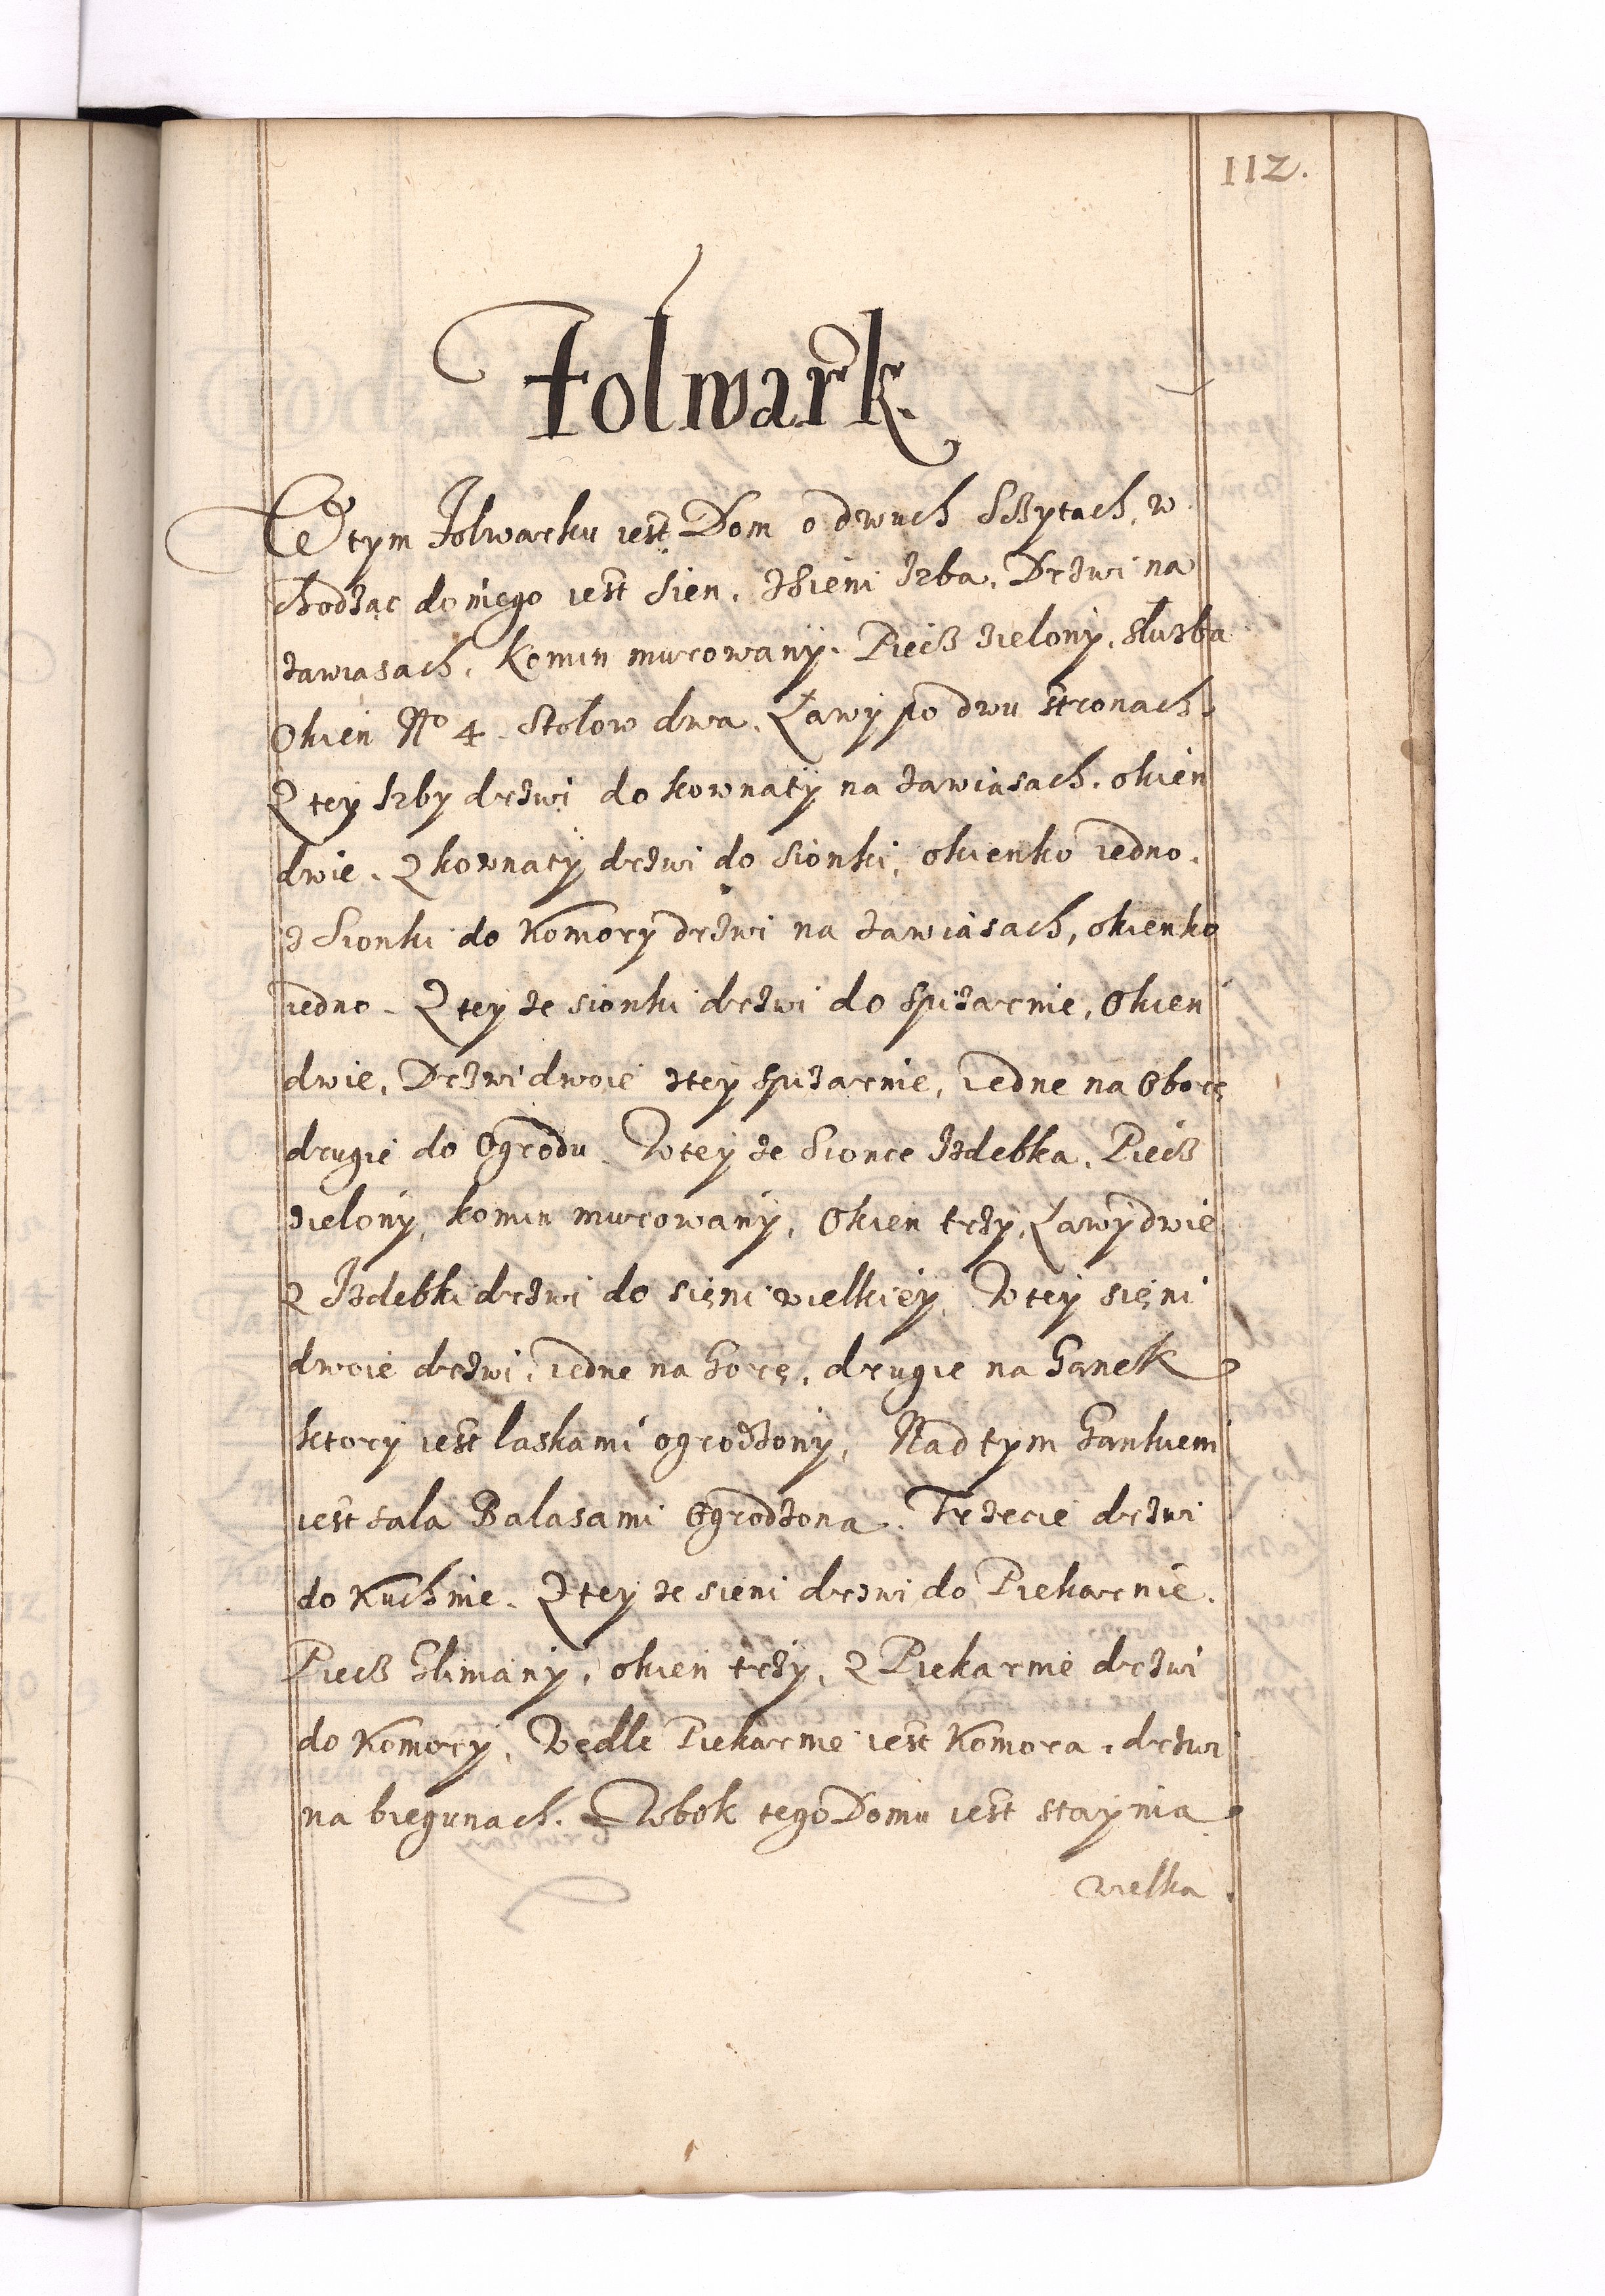 112.
Folwark.
W tym Folwarku iest Dom o dwuch Sczytach, w
chodząc do niego iest Sien. z Sieni Izba. Drzwi na
zawiasach. Komin murowany. Piecz zielony. słuzba
Okien No 4. Stołow dwa. Ławy po dwu stronach.
Z tey Izby drzwi do kownaty na zawiasach. okien
dwie. z kownaty drzwi do Sionki, okienko iedno.
z Sionki do Komory drzwi na zawiasach, okienko
iedno. Z tey ze sionki drzwi do spizarnie, Okien
dwie, Drzwi dwoie z tey spizarnie, iedne na Oborę
drugie do Ogrodu. W tey ze Sionce Izdebka. Piecz
zielony, komin murowany, Okien trzy, Ławy dwie
z Izdebki drzwi do sięni wielkiey. W tey sięni
dwoie drzwi, iedne na Gorę, drugie na Ganek
ktory iest laskami ogrodzony, Nad tym Gankiem
iest sala Balasami Ogrodzona. Trzecie drzwi
do Kuchnie. Z tey ze sieni drzwi do Piekarnie.
Piecz Gliniany, okien trzy, z Piekarnie drzwi
do Komory, Wedle Piekarnie iest Komora, drzwi
na biegunach. Wbok tego Domu iest staynia
wielka.